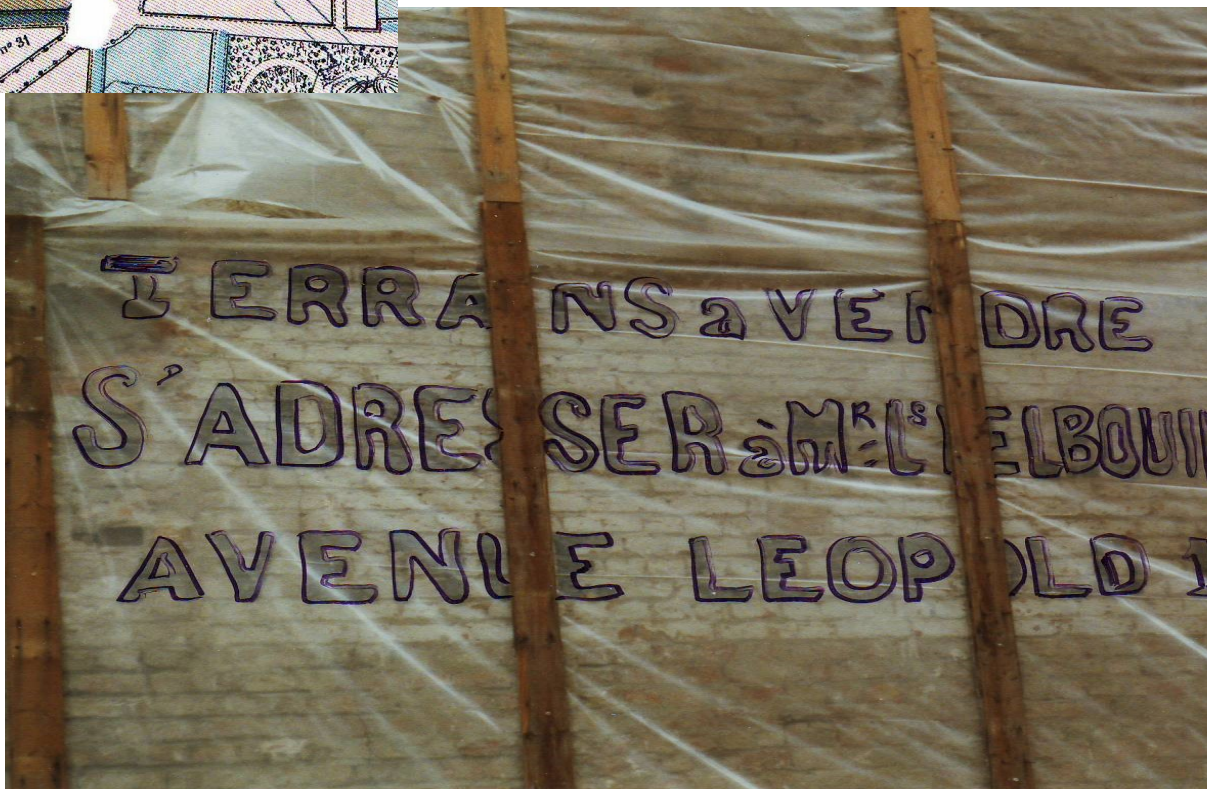 nº 31
TERRAINS a VENDRE
S'ADRESSER à MR LS
AVENUE LEOPOLD